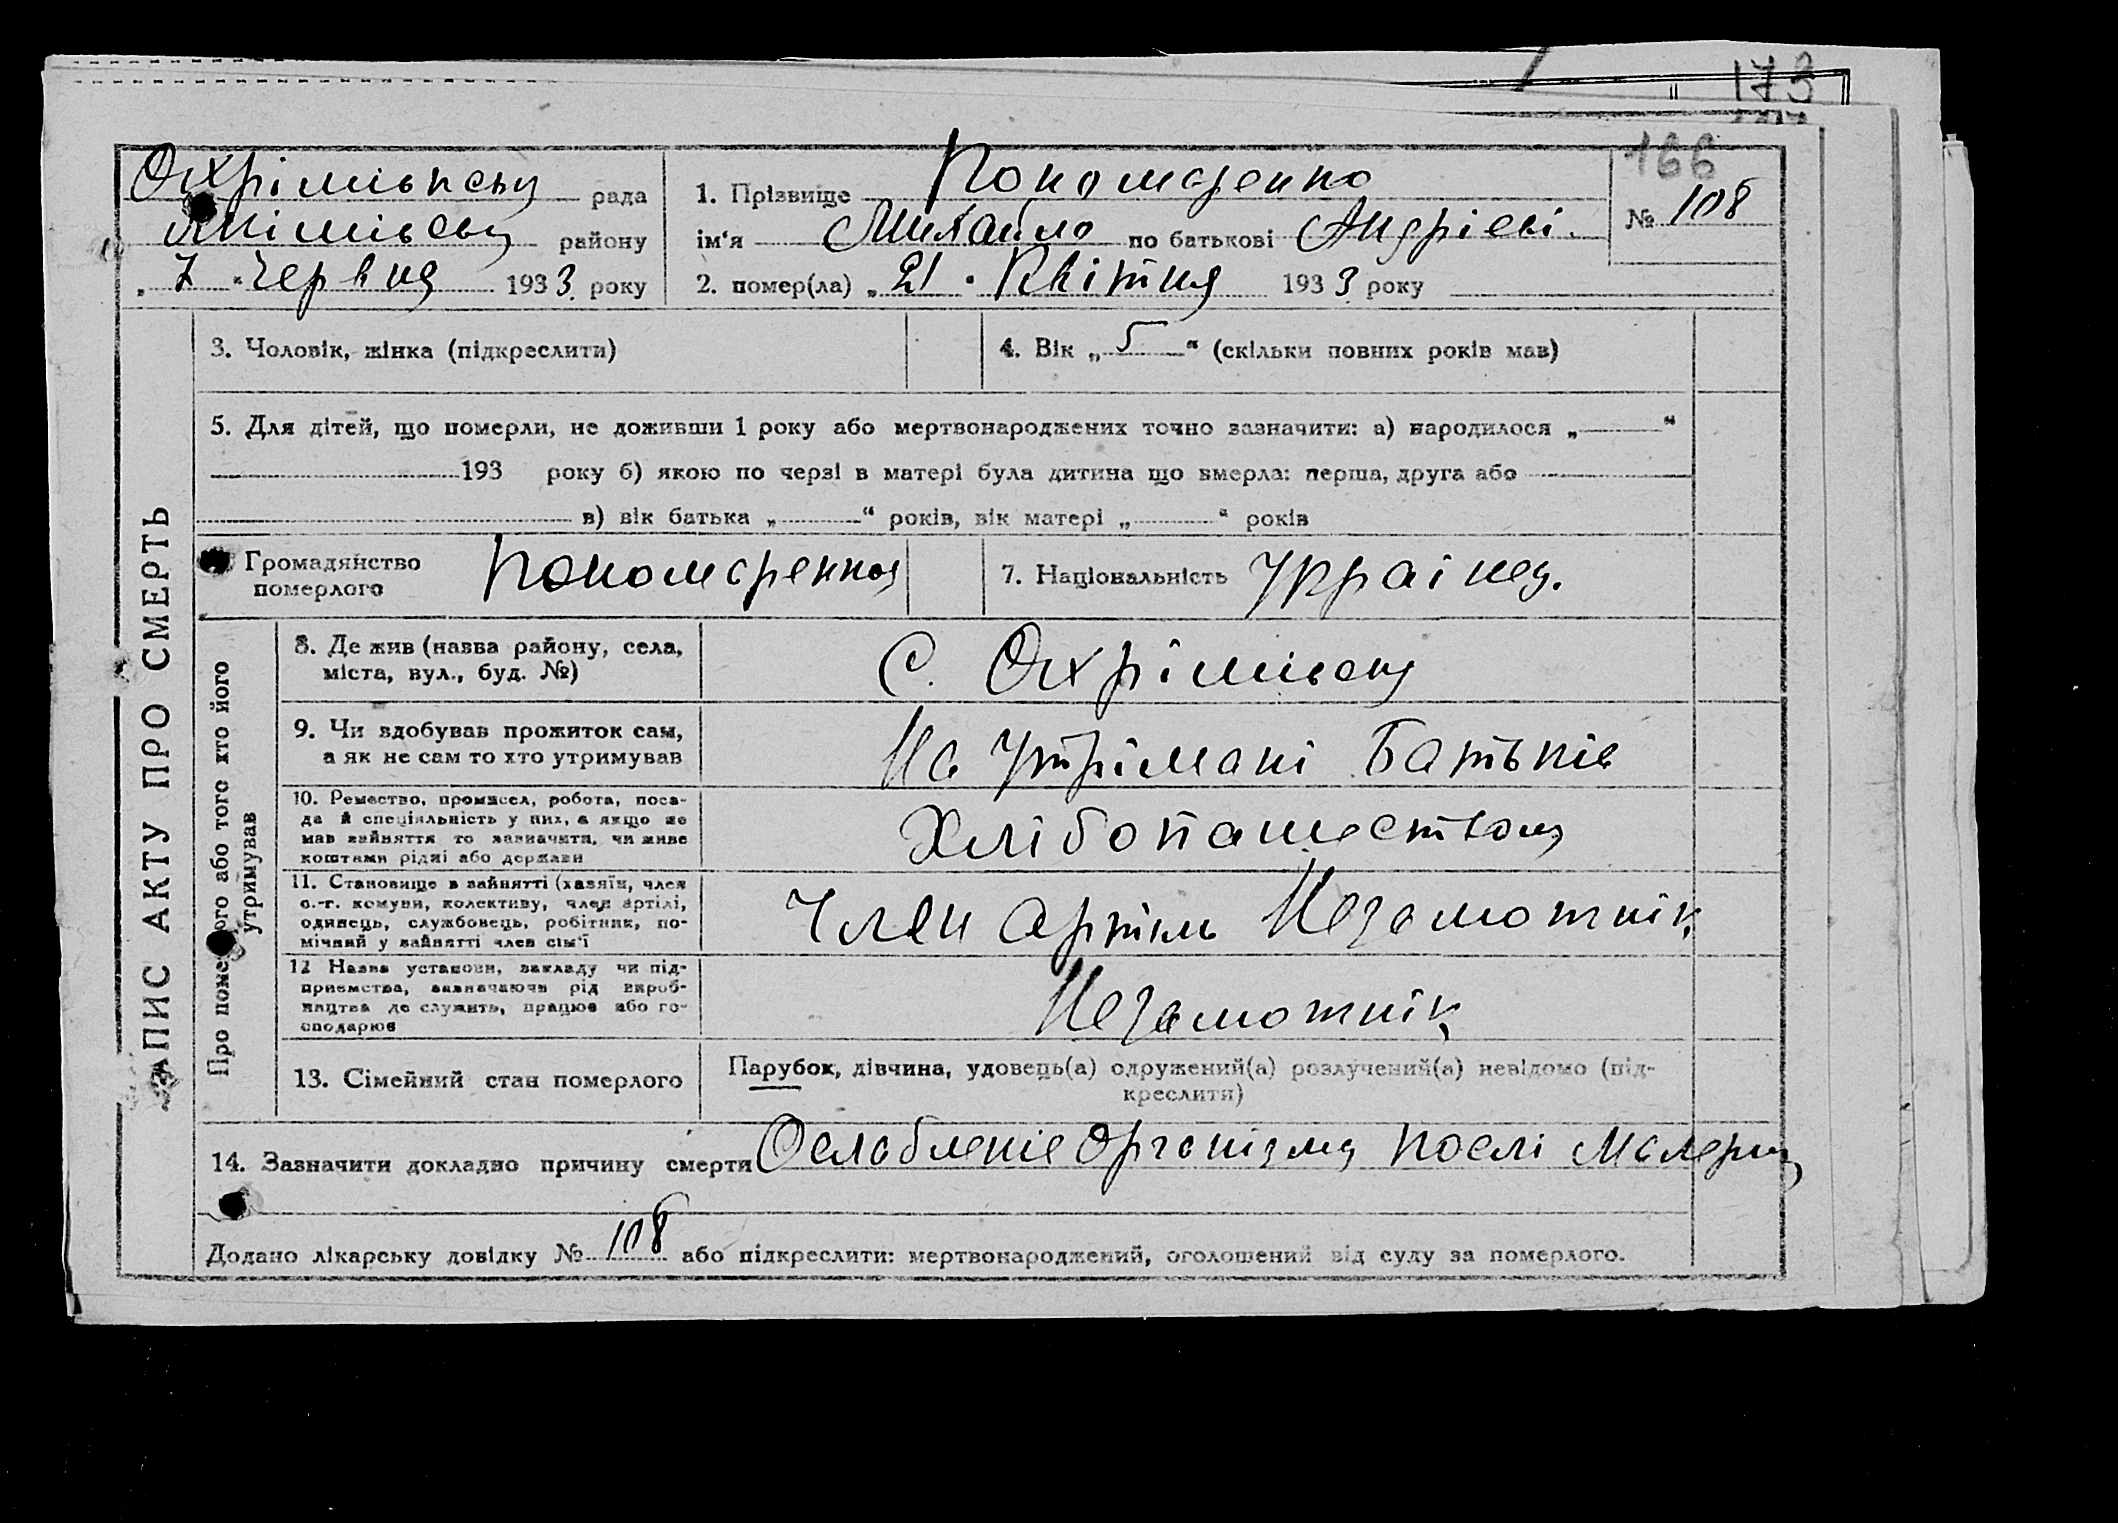 173
166
Охрімівську рада
Якімівську району
„ 7 “ Червня 1933 року
1. Прізвище Пономаренко
ім‘я Михайло по батькові Андрієві.
№ 108
2. помер(ла) „ 21 “ Квітня 1933 року
ЗАПИС АКТУ ПРО СМЕРТЬ
3. Чоловік, жінка (підкреслити)
4. Вік „ 5 “ (скільки повних років мав)
5. Для дітей, що померли, не доживши 1 року або мертвонароджених точно зазначити: а) народилося „ “
193 року б) якою по черзі в матері була дитина що вмерла: перша, друга або
в) вік батька „ “ років, вік матері „ “ років
Громадянство
померлого
Пономаренко
7. Національність Украінец.
Про померлого або того хто його
утримував
8. Де жив (назва району, села,
міста, вул., буд. №)
С. Охрімівську
9. Чи здобував прожиток сам,
а як не сам то хто утримував
На Утрімані Батьків
10. Ремество, промисел, робота, поса-
да й спеціяльність у них, а якщо не
мав зайняття то зазначити, чи живе
коштами рідні або держави
Хлібопашеством
11. Становище в зайнятті (хазяїн, член
с.-г. комуни, колективу, член артілі,
одинець, службовець, робітник, по-
мічний у зайнятті член сім‘ї
Член Артіль Незаможнік
12 Назва установи, закладу чи під-
приємства, зазначаючи рід вироб-
ництва де служить, працює або го-
сподарює
Незаможнік
13. Сімейний стан померлого
Парубок, дівчина, удовець(а) одружений(а) розлучений(а) невідомо (під-
креслити)
14. Зазначити докладно причину смерти Ослабленіе Организма послі Малериї
Додано лікарську довідку № 108 або підкреслити: мертвонароджений, оголошений від суду за померлого.